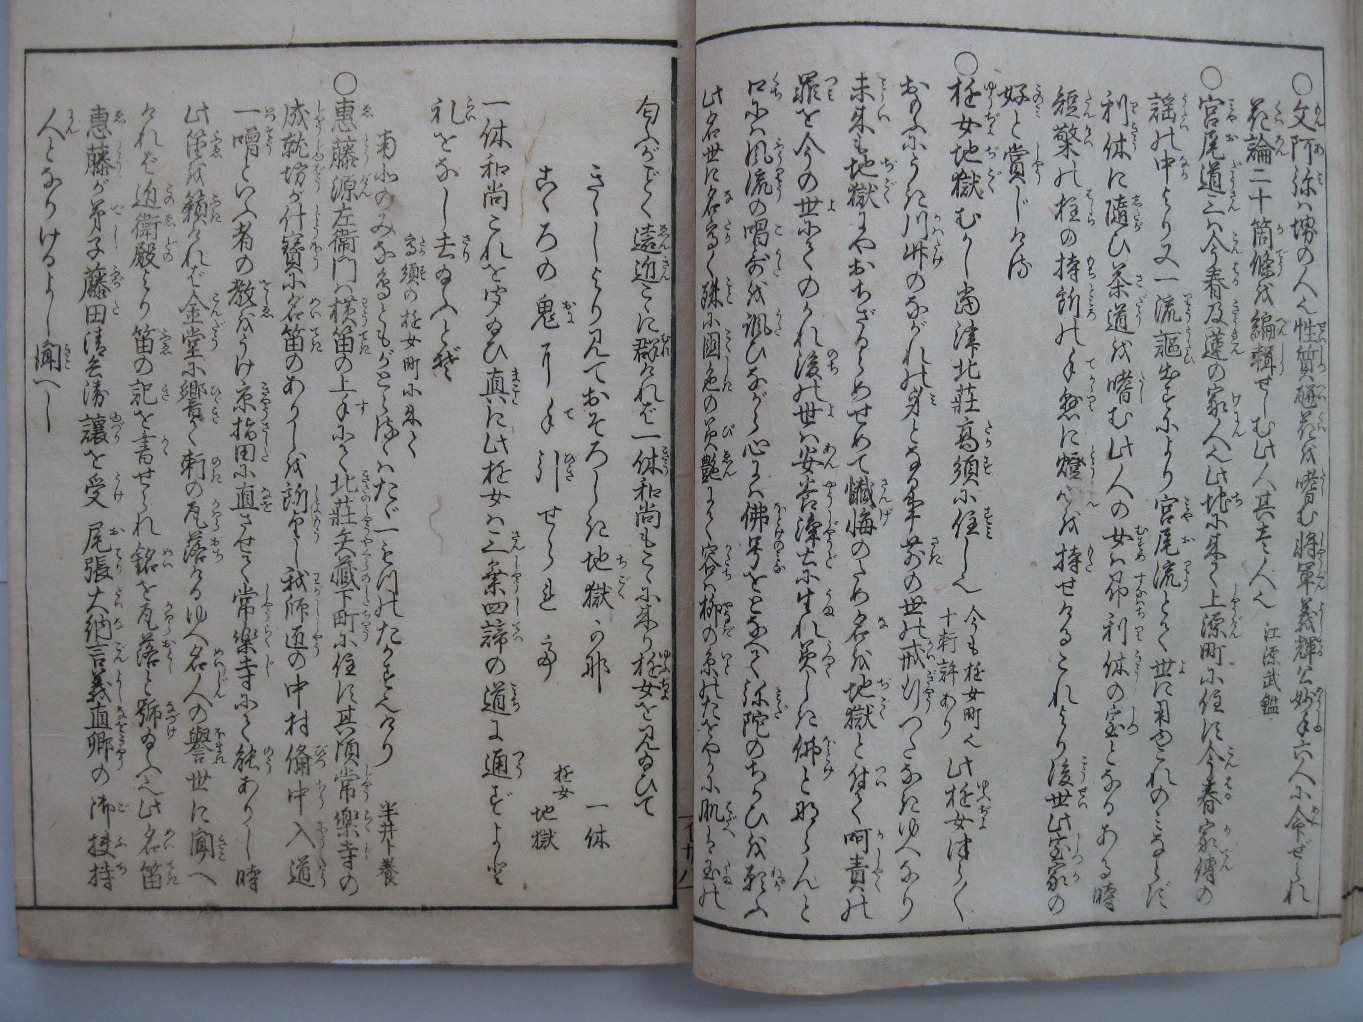 ○文阿弥ハ堺の人也性質甁花を嗜む将軍義輝公妙手六人に命ぜられ
花論二十箇條を編輯せしむ此人其壱人也 江源武鑑
○宮尾道三ハ今春及蓮の家人也此地に来て上源町に住す今春家傳の
謡の中より又一流謳出すにより宮尾流とて世に用ゆこれのミならず
利休に隨ひ茶道を嗜む此人の女ハ即利休の室となるある時
短檠の柱の持所の手がに燈心を持せけるこれより後世此室家の
好と賞しける
○遊女地獄むかし當津北荘高須に住し也 今も遊女町也十軒許あり 此遊女つらつら
おもふやうは川竹のながれの身となる事前の世の戒行つたなきゆへなり
未来も地獄にやおちざらめせめて懺悔のため名を地獄と付て呵責の
罪を今の世にてのがれ後の世ハ安養浄土に生れ美しき佛と那らんと
口にハ風流の唱哥を諷ひながら心にハ佛号をとなへて弥陀のちかひを願ふ
此名世に名高く殊に國色の美艶にて容ハ柳の糸のたをやかに肌ハ玉の
匂ふがごとく遠近こに群けれバ一休和尚もこゝに来り遊女を見給ひて
きゝしより見ておそろしき地獄かな 一休
こゝろの鬼か手引せられて 遊女 地獄
一休和尚これを聞給ひ真に此遊女ハ三乗四諦の道に通ずよとて
礼をなし去給ふとぞ
高須の遊女町に来て
南北のみな島ともがとらゆハたゞ一をりのたかすなりけり 半井卜養
○惠藤源左衛門ハ横笛の上手にて北荘矢蔵下町に住す其頃常樂寺の
成就坊が什寳に名笛のありしを所望し我師道の中村備中入道
一噌といふ者の教をうけ京指田に直させて常樂寺にて能ありし時
此笛を籟けれバ金堂に響て軒の瓦落けるゆへ名人の譽世に聞へ
けれバ近衛殿より笛の記を書せられ銘を瓦落と号給へし此名笛
惠藤が弟子藤田清兵衛讓を受 尾張大納言義直卿の御扶持
人となりけるよし聞へし